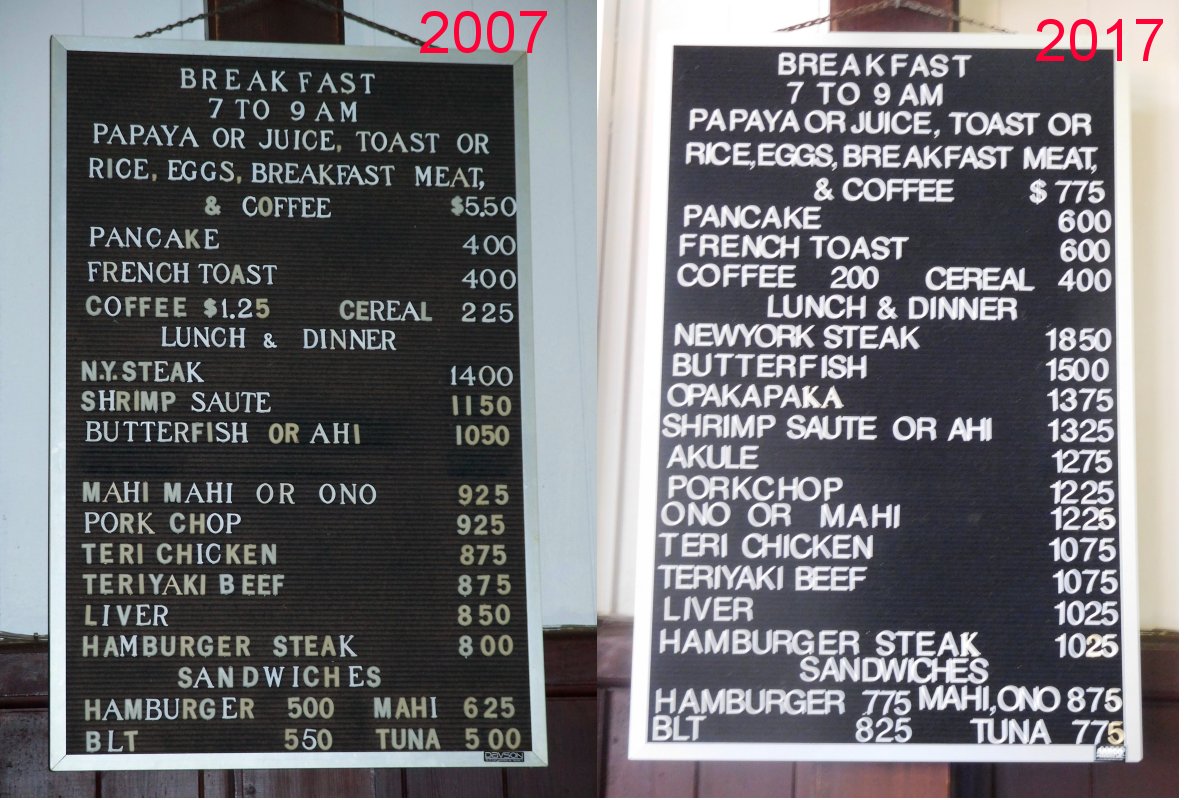 2007
BREAKFAST
7 TO 9 AM
PAPAYA OR JUICE, TOAST OR
RICE, EGGS, BREAKFAST MEAT,
& COFFEE $5.50
PANCAKE 400
FRENCH TOAST 400
COFFEE $1.25 CEREAL 225
LUNCH & DINNER
N.Y. STEAK 1400
SHRIMP SAUTE 1150
BUTTERFISH OR AHI 1050
MAHI MAHI OR ONO 925
PORK CHOP 925
TERI CHICKEN 875
TERIYAKI BEEF 875
LIVER 850
HAMBURGER STEAK 800
SANDWICHES
HAMBURGER 500 MAHI 625
BLT 550 TUNA 500
DAVSON
2017
BREAKFAST
7 TO 9 AM
PAPAYA OR JUICE, TOAST OR
RICE, EGGS, BREAKFAST MEAT,
& COFFEE $ 775
PANCAKE 600
FRENCH TOAST 600
COFFEE 200 CEREAL 400
LUNCH & DINNER
NEWYORK STEAK 1850
BUTTERFISH 1500
OPAKAPAKA 1375
SHRIMP SAUTE OR AHI 1325
AKULE 1275
PORKCHOP 1225
ONO OR MAHI 1225
TERI CHICKEN 1075
TERIYAKI BEEF 1075
LIVER 1025
HAMBURGER STEAK 1025
SANDWICHES
HAMBURGER 775 MAHI, ONO 875
BLT 825 TUNA 775